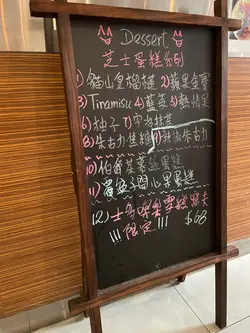 Dessert
芝士蛋糕系列
1) 貓山皇榴槤 2) 蘋果金寶
3) Tiramisu 4) 藍莓 5) 熱情果
6) 柚子 7) 宇治抹茶
8) 朱古力焦糖 9) 朱古力
10) 伯爵茶
11) 開心果蛋糕
12) 士多啤梨
!!! 限定 !!! $68